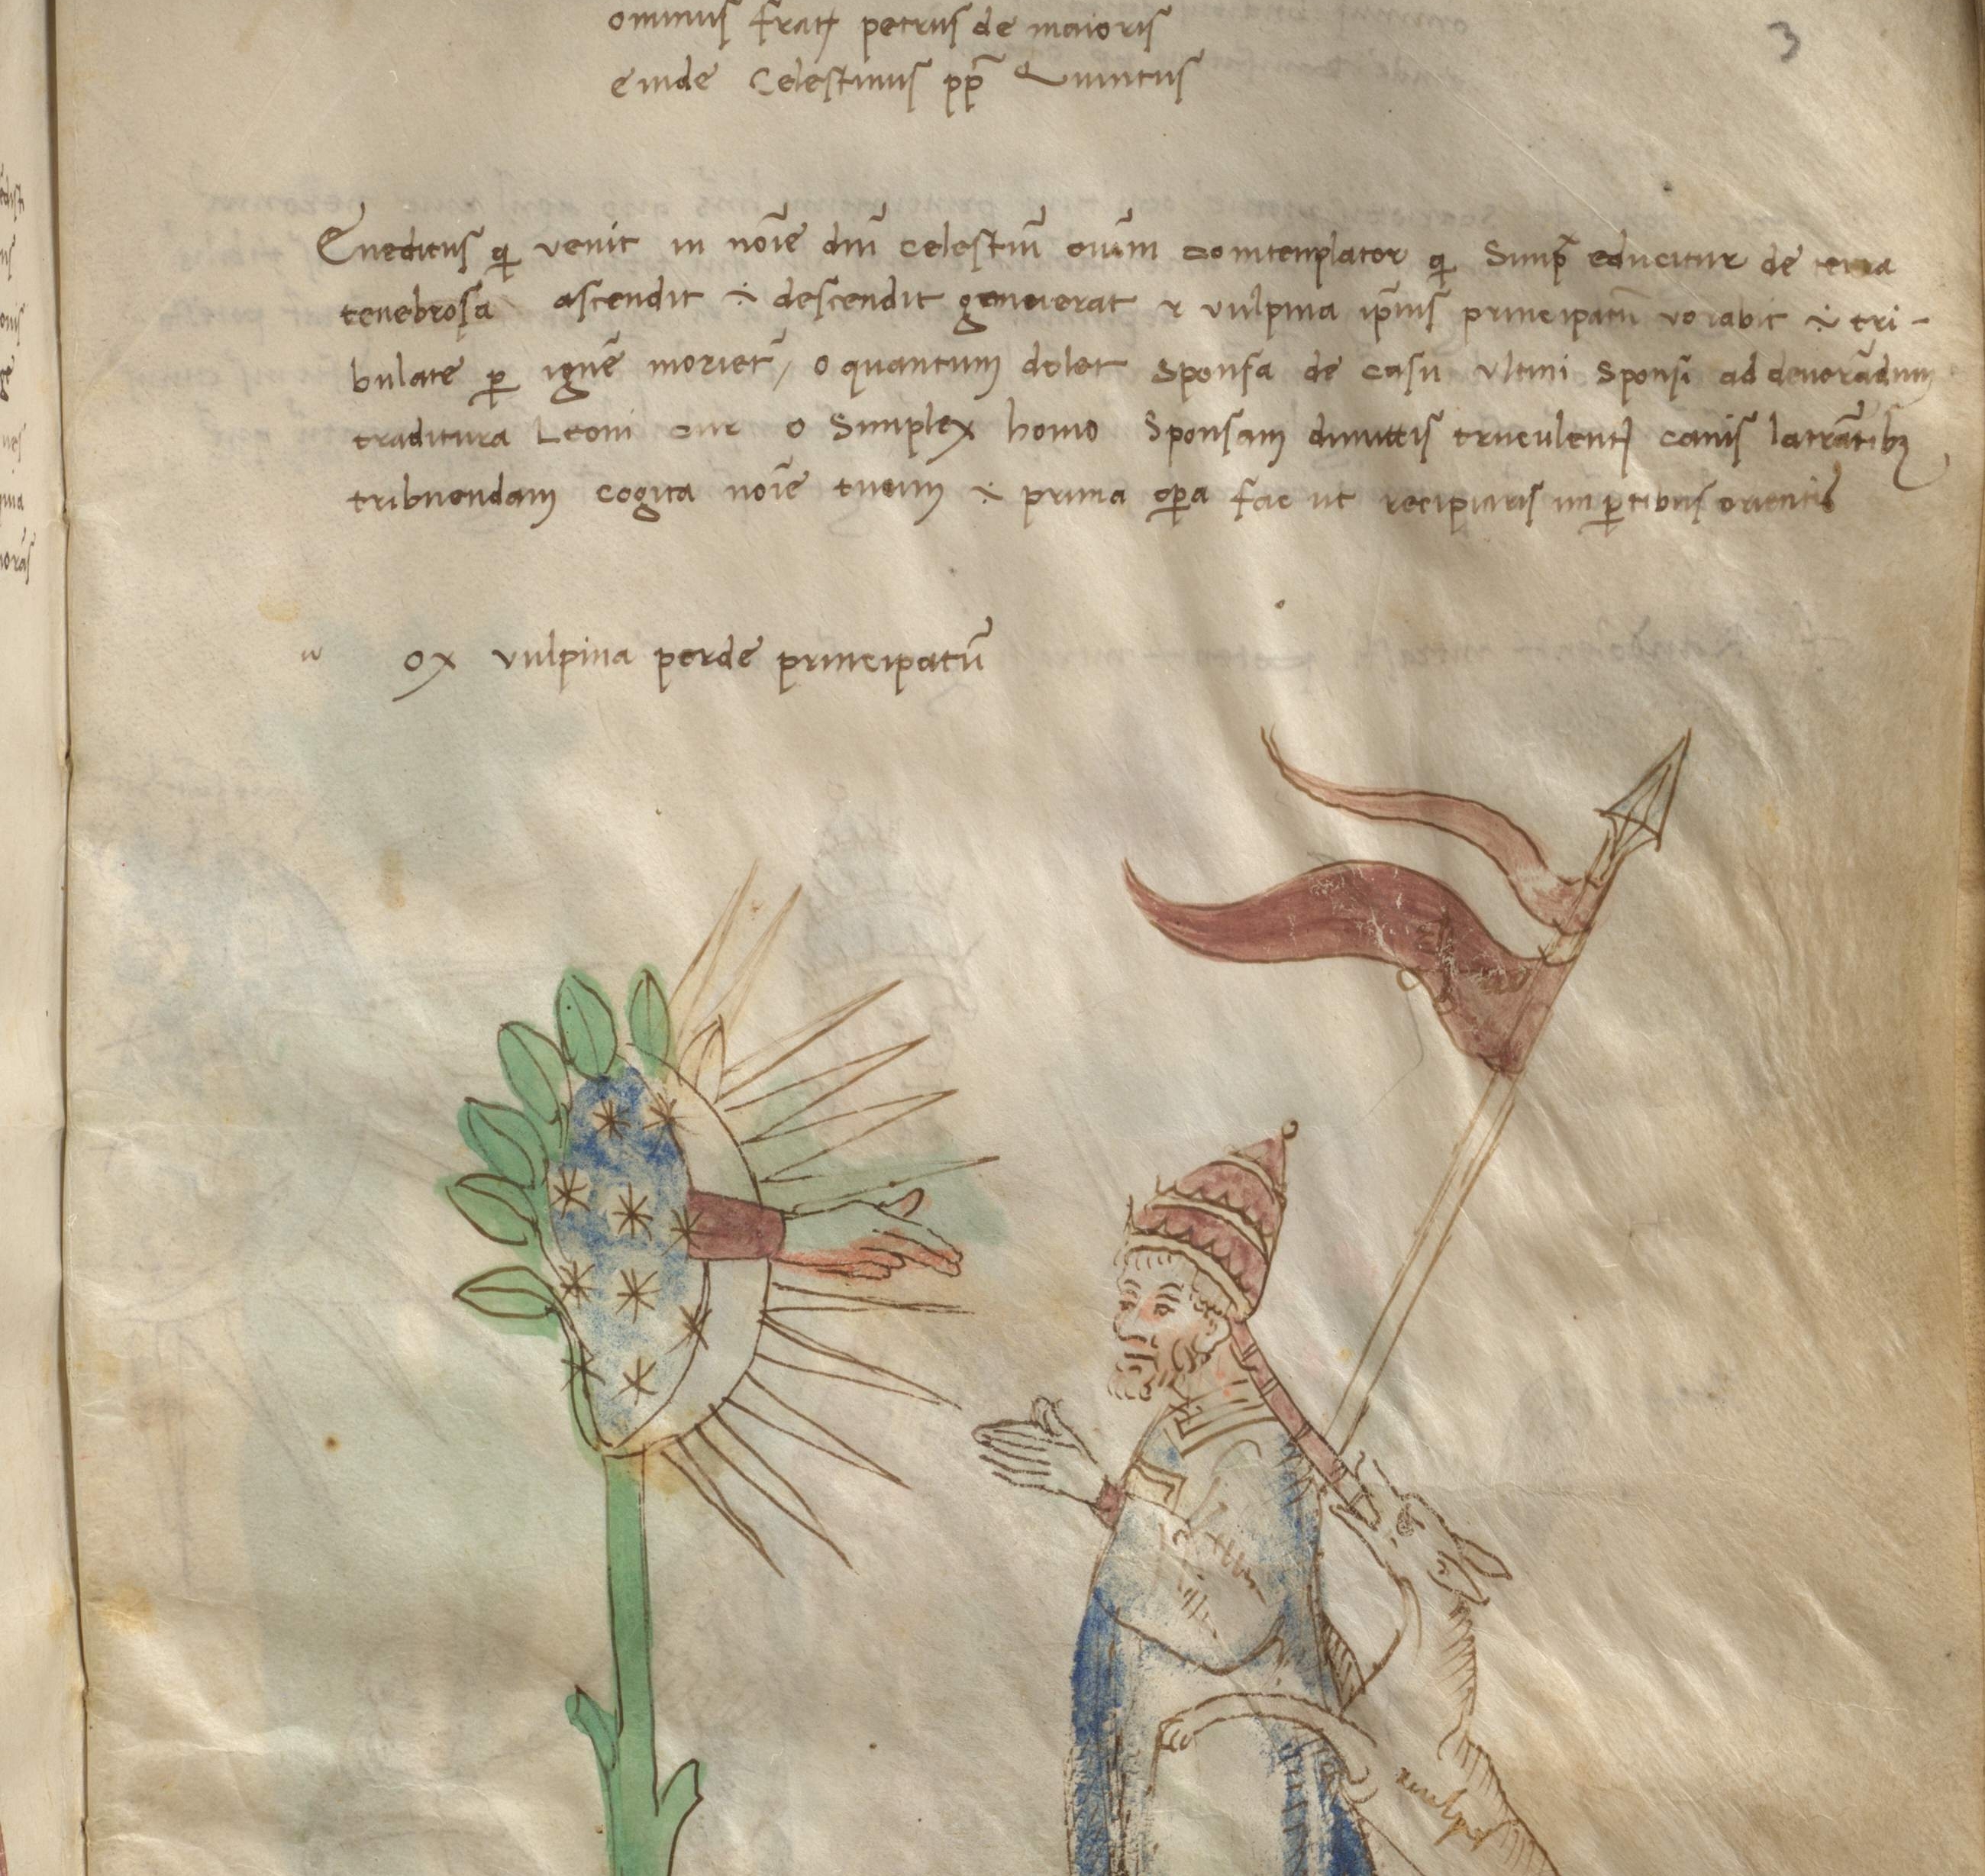 3
ominus fratɟ petrus de maioris
einde Celestinus pp̄ Quintus
Enedictus qi venit in noīe dnī celestiū oiūm contemplator qi Simpr̄ educitur de terra
tenebrosa ascendit & descendit vulpina ip̄ius principatū vorabit & tri-
bulate p ignē moriet᷑ / o quantum dolet Sponsa de casu ultimi Sponsi ad deuorādum
traditura Leoni cur o Simplex homo Sponsam dimittis truculentɟ canis latrātibꝫ
tribuendam cogita noīe tuum & prima opa fac ut recipiaris in ptibus orientis
ox vulpina perde principatū